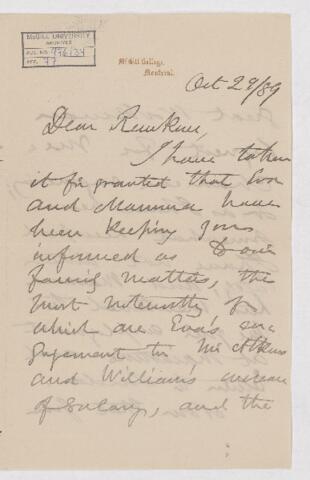 McGILL UNIVERSITY
ARCHIVES
ACC. NO. 976/34
REF. 77
McGill College,
Montreal.
Oct 29/89
Dear Rankine,
I have taken
it for granted that Eva
and Mamma have
been keeping you
informed as to our
family matters, the
most noteworthy of
which are Eva's en-
gagement to Mr Atkin
and William's increase
of salary, and the